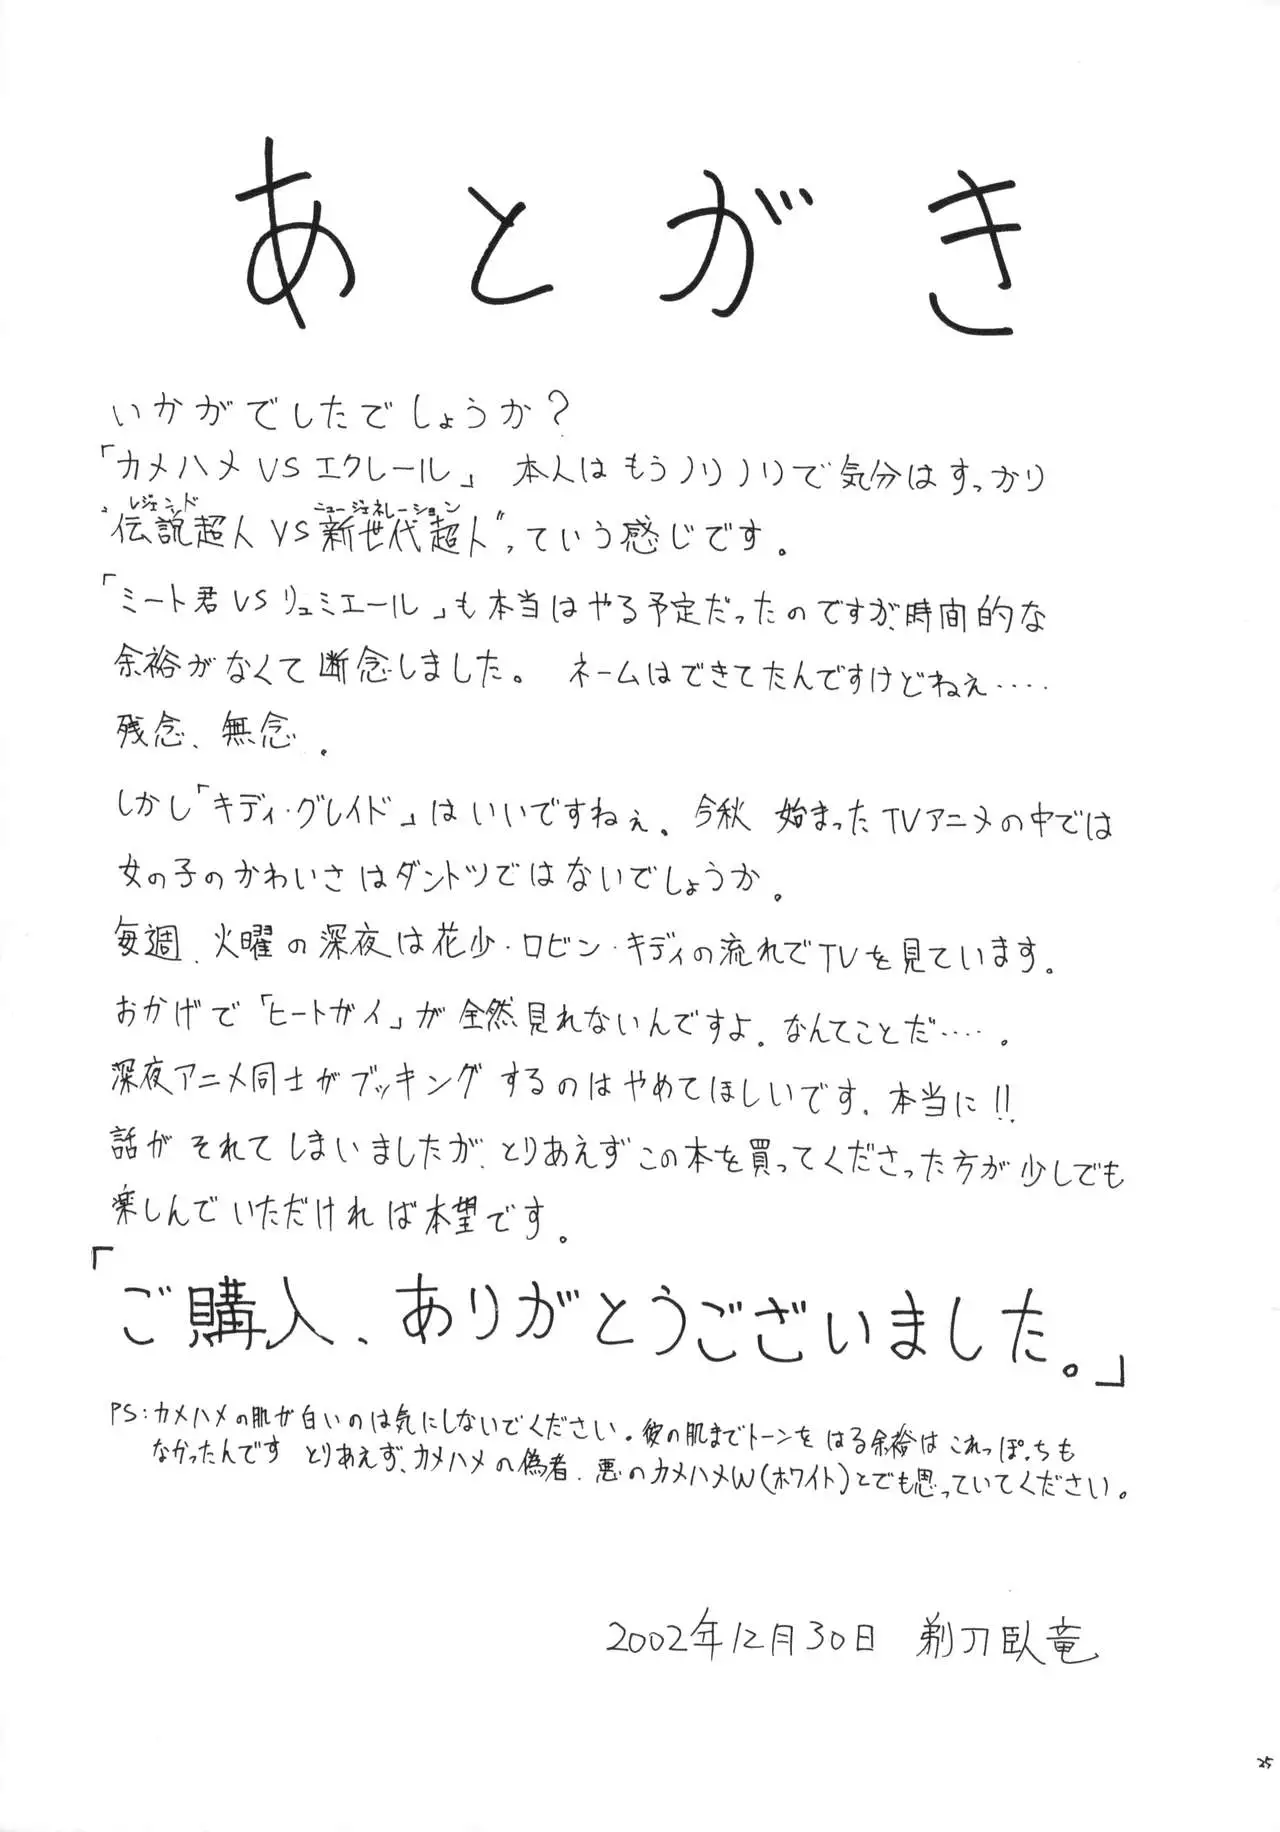 あとがき
いかがでしたでしょうか?
「カメハメVSエクレール」 本人はもうノリノリで気分はすっかり
レジェンド ニュージェネレーション
"伝説超人VS新世代超人"っていう感じです。
「ミート君VSリュミエール」も本当はやる予定だったのですが、時間的な
余裕がなくて断念しました。 ネームはできてたんですけどねぇ‥‥
残念、無念。
しかし「キディ・グレイド」はいいですねぇ。今秋 始まったTVアニメの中では
女の子のかわいさはダントツではないでしょうか。
毎週、火曜の深夜は花少・ロビン・キディの流れでTVを見ています。
おかげで「ヒートガイ」が全然見れないんですよ。なんてことだ‥‥。
深夜アニメ同士がブッキングするのはやめてほしいです、本当に!!
話がそれてしまいましたが、とりあえずこの本を買ってくださった方が少しでも
楽しんでいただければ本望です。
「ご購入、ありがとうございました。」
PS:カメハメの肌が白いのは気にしないでください。彼の肌までトーンをはる余裕はこれっぽっちも
なかったんです とりあえず、カメハメの偽者、悪のカメハメW(ホワイト)とでも思っていてください。
2002年12月30日 剃刀臥竜
25